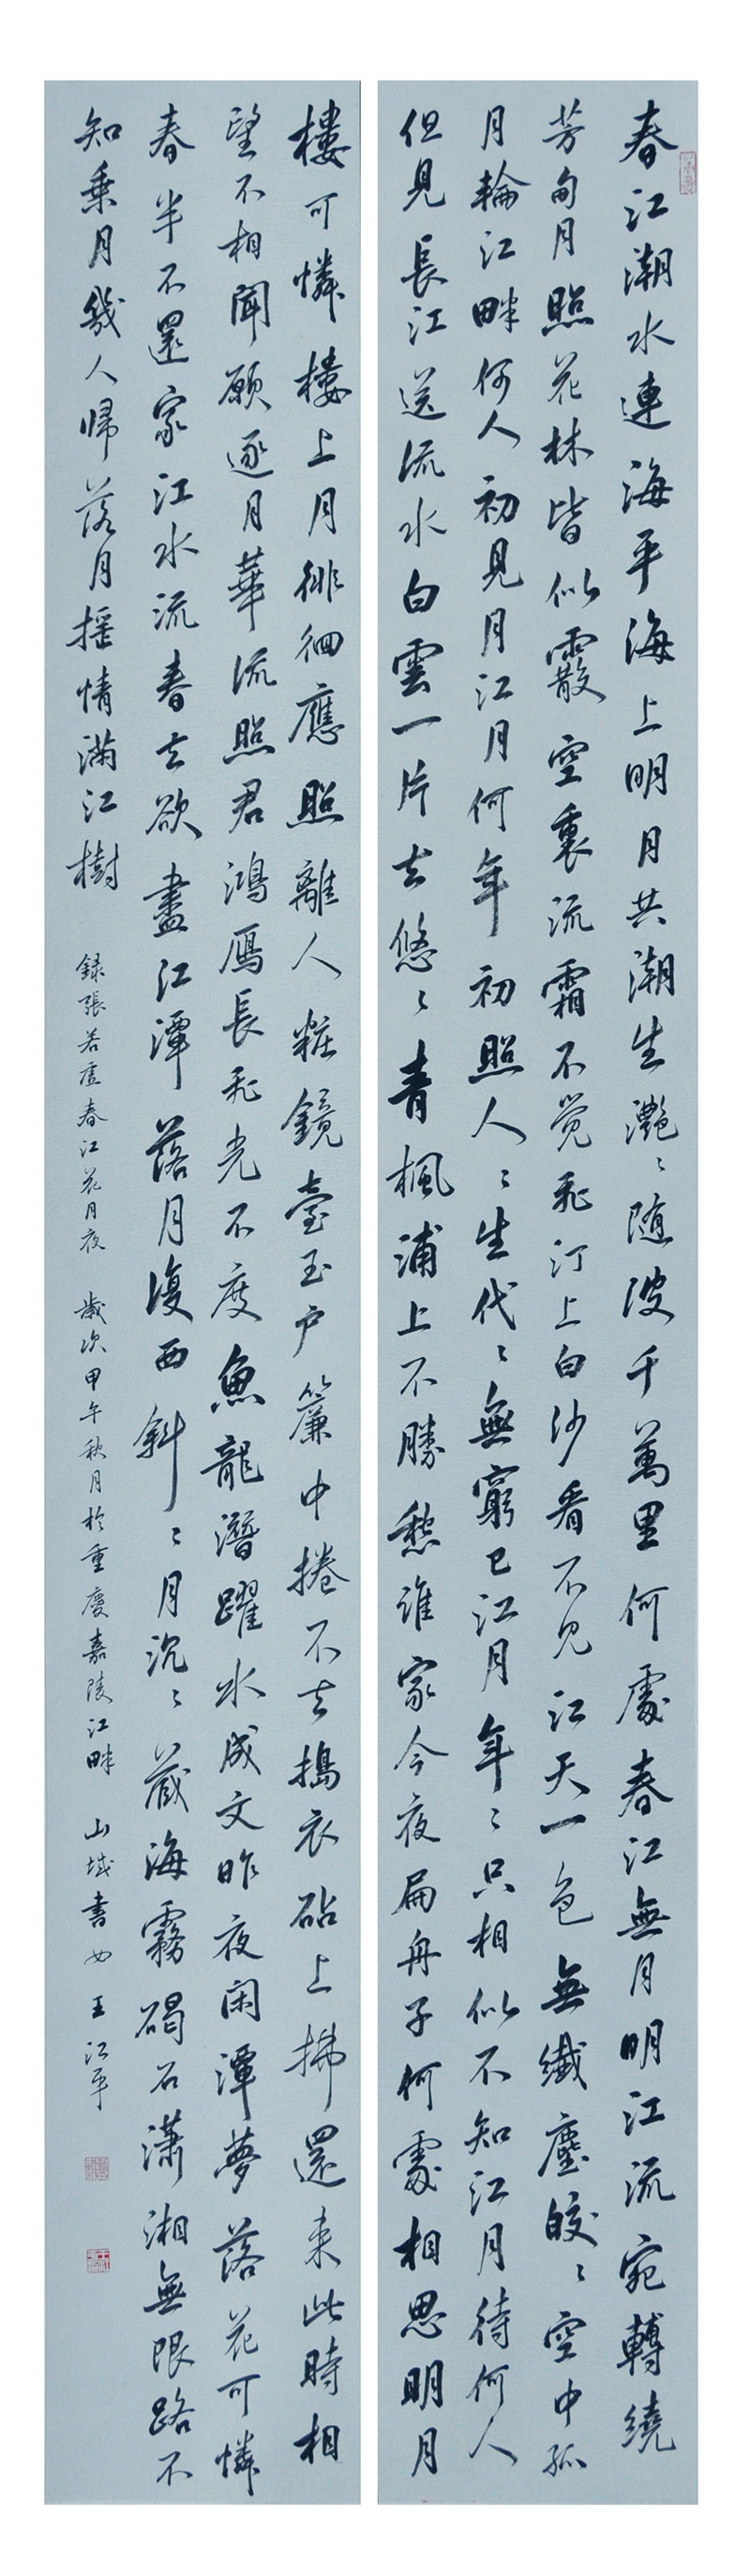 春江潮水連海平海上明月共潮生灧〻随波千萬里何處春江無月明江流宛轉繞
芳甸月照花林皆似霰空裏流霜不觉飛汀上白沙看不見江天一色無纖塵皎〻空中孤
月輪江畔何人初見月江月何年初照人〻生代〻無窮已江月年〻只相似不知江月待何人
但見長江送流水白雲一片去悠〻青楓浦上不勝愁誰家今夜扁舟子何處相思明月
樓可憐樓上月徘徊應照離人粧鏡臺玉户簾中捲不去搗衣砧上拂還来此時相
望不相聞願逐月華流照君鴻雁長飛光不度魚龍潛躍水成文昨夜閑潭夢落花可憐
春半不還家江水流春去欲盡江潭落月復西斜〻月沉〻藏海霧碣石瀟湘無限路不
知乘月幾人歸落月摇情滿江樹 録張若虛春江花月夜 歲次甲午秋月於重慶嘉陵江畔 山城書女 王江平